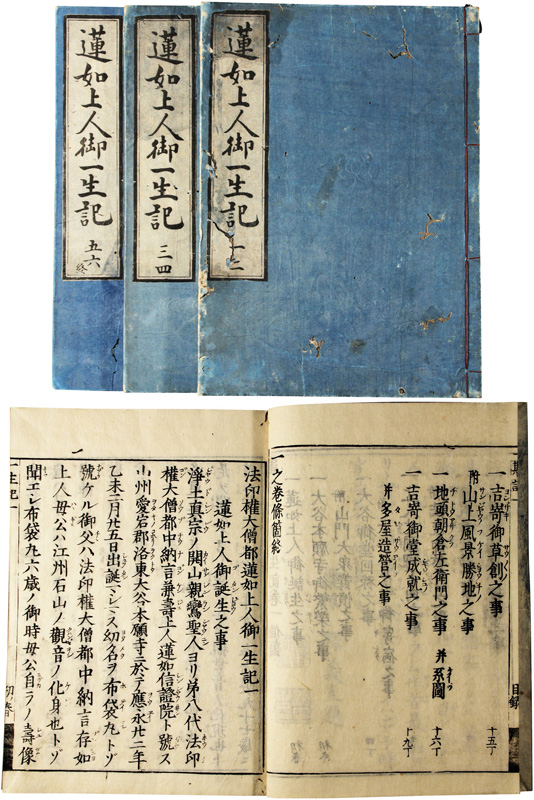 蓮如上人御一生記 一二
蓮如上人御一生記 三四
蓮如上人御一生記 五六終
一吉崎御草創之事 十五丁
附山上風景勝地之事
一地頭朝倉左衛門之事 并系圖 十六丁
一吉崎御堂成就之事
并多屋造營之事 十九丁
一之巻條箇終
目録
法印權大僧都蓮如上人御一生記一
蓮如上人御誕生之事
淨土真宗ノ開山親鸞聖人ヨリ第八代法印
權大僧都中納言兼壽上人蓮如信證院ト號ス
山州愛宕郡洛東大谷本願寺ニ於テ應永廿二年
乙未二月廿五日出誕シ玉フ幼名ヲ布袋丸トゾ
號ケル御父ハ法印權大僧都中納言存如
上人母公ハ江州石山ノ觀音ノ化身也トゾ
聞エシ布袋丸六歳ノ御時母公自ラノ壽像
一生記一